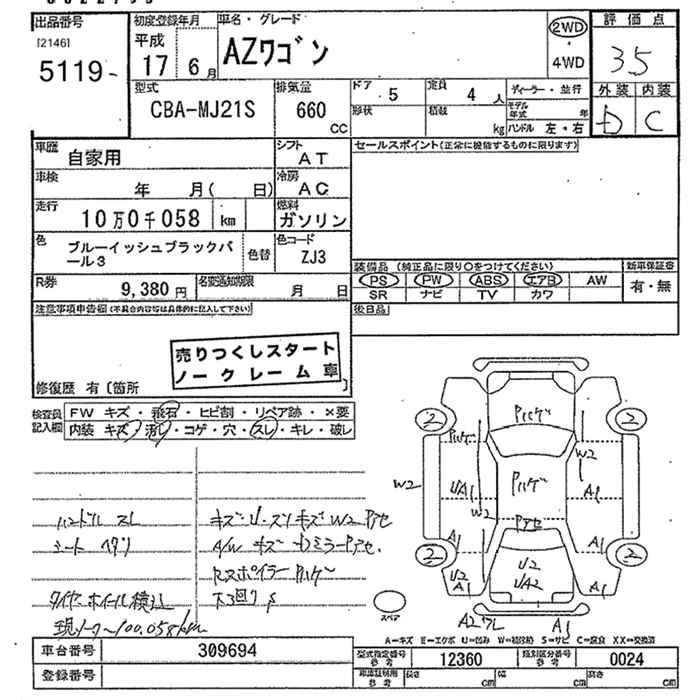 出品番号
[2146]
5119
初度登録年月
平成
17 6月
車名・グレード
AZワゴン
2WD
・
4WD
評価点
3.5
外装 内装
D C
型式
CBA-MJ21S
排気量
660
CC
ドア 5
定員 4 人
形状
積載 kg
ディーラー・並行
モデル年式 年
ハンドル 左・右
車歴
自家用
シフト
AT
車検
年 月( 日)
冷房
AC
走行
10万0千058 km
燃料
ガソリン
色
ブルーイッシュブラックパ
ール3
色替
色コード
ZJ3
R券
9,380円
名変通知期限
月 日
セールスポイント(正常に機能するものに限ります)
装備品(純正品に限り○をつけてください)
新車保証書
PS PW ABS エアB AW
有・無
SR ナビ TV カワ
後日品
注意事項申告欄(不具合内容等は具体的に記入して下さい)
売りつくしスタート
ノークレーム車
修復歴 有〔箇所
検査員
記入欄
FW キズ・飛石・ヒビ割・リペア跡・×要
内装 キズ・汚レ・コゲ・穴・スレ・キレ・破レ
ハンドル スレ
シート ヘタリ
タイヤホイール積込
現メーター100,058km
キズ U・スリキズ W2 Pアセ
A/W キズ
Rスポイラー Pハゲ
Pハゲ
Pハゲ
Pハゲ
Pアセ
2
2
2
2
W2
W2
W2
UA1
A1
A1
A1
U2
A1
U2
UA2
A1
A1
スペア
A=キズ E=エクボ U=凹み W=補修跡 S=サビ C=腐食 XX=交換済
車台番号
309694
登録番号
型式指定番号
参考
12360
類別区分番号
参考
0024
車庫証明用
参考
長さ cm
幅 cm
高さ cm